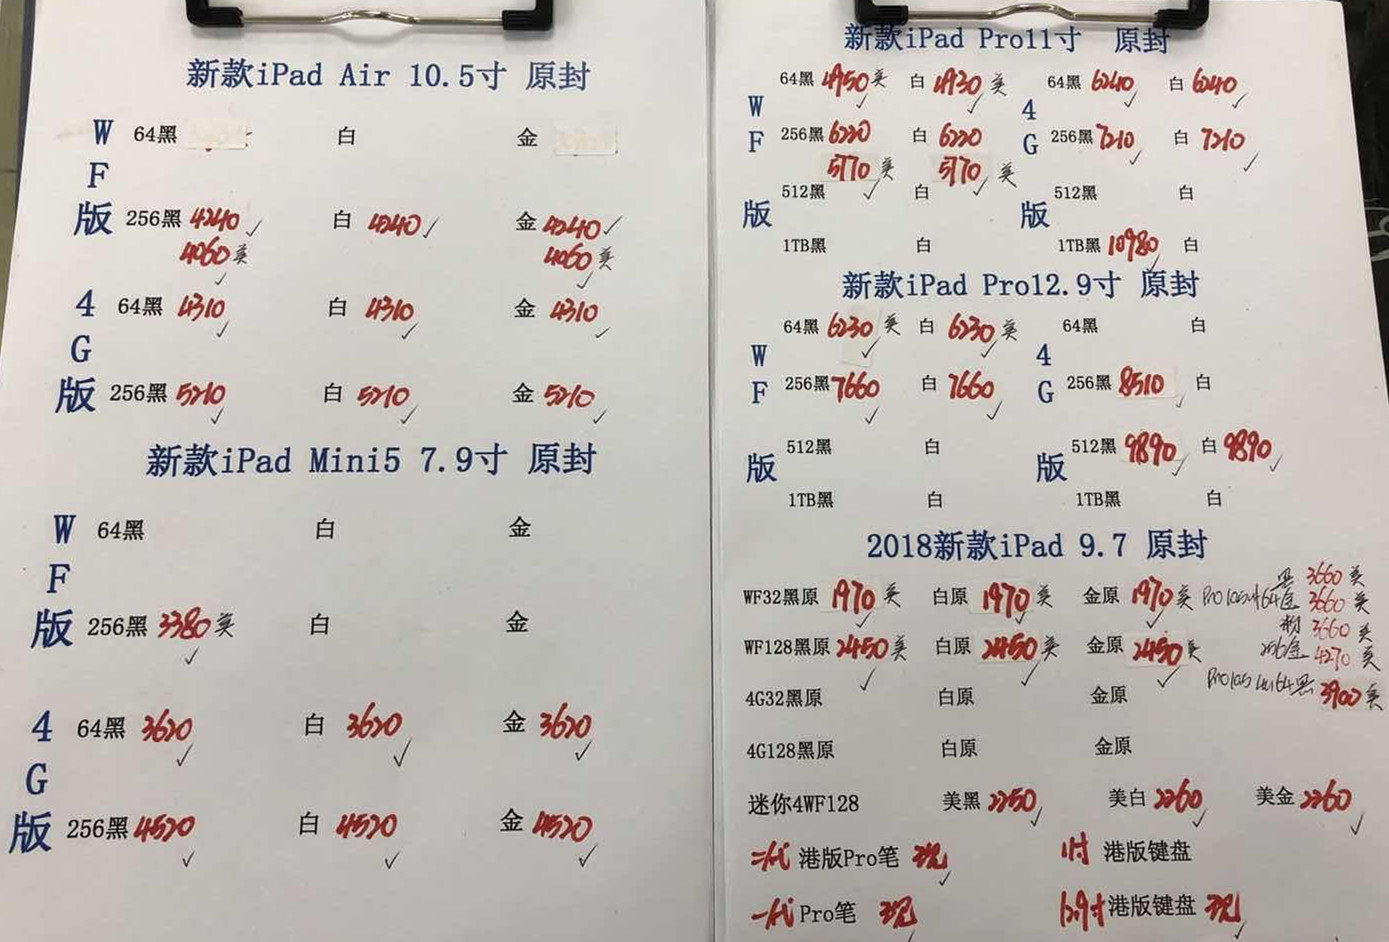 新款iPad Air 10.5寸 原封
WF版
64黑 白 金
256黑 4240 白 4240 金 4240
4060美 4060美
4G版
64黑 4310 白 4310 金 4310
256黑 5210 白 5210 金 5210
新款iPad Mini5 7.9寸 原封
WF版
64黑 白 金
256黑 3380美 白 金
4G版
64黑 3620 白 3620 金 3620
256黑 4520 白 4520 金 4520
新款iPad Pro11寸 原封
WF版
64黑 4950美 白 4930美
256黑 6220 白 6220
5770美 5770美
512黑 白
1TB黑 白
4G版
64黑 6240 白 6240
256黑 7210 白 7210
512黑 白
1TB黑 10980 白
新款iPad Pro12.9寸 原封
WF版
64黑 6230美 白 6230美
256黑 7660 白 7660
512黑 白
1TB黑 白
4G版
64黑 白
256黑 8510 白
512黑 9890 白 9890
1TB黑 白
2018新款iPad 9.7 原封
WF32黑原 1970美 白原 1970美 金原 1970美
WF128黑原 2450美 白原 2450美 金原 2450美
4G32黑原 白原 金原
4G128黑原 白原 金原
黑 3660美
Pro10.5寸64金 3660美
粉 3660美
256金 4270美
Pro10.5 64黑 3900美
迷你4WF128 美黑 2250 美白 2260 美金 2260
二代 港版Pro笔 现 11寸 港版键盘
一代 Pro笔 现 12.9寸 港版键盘 现